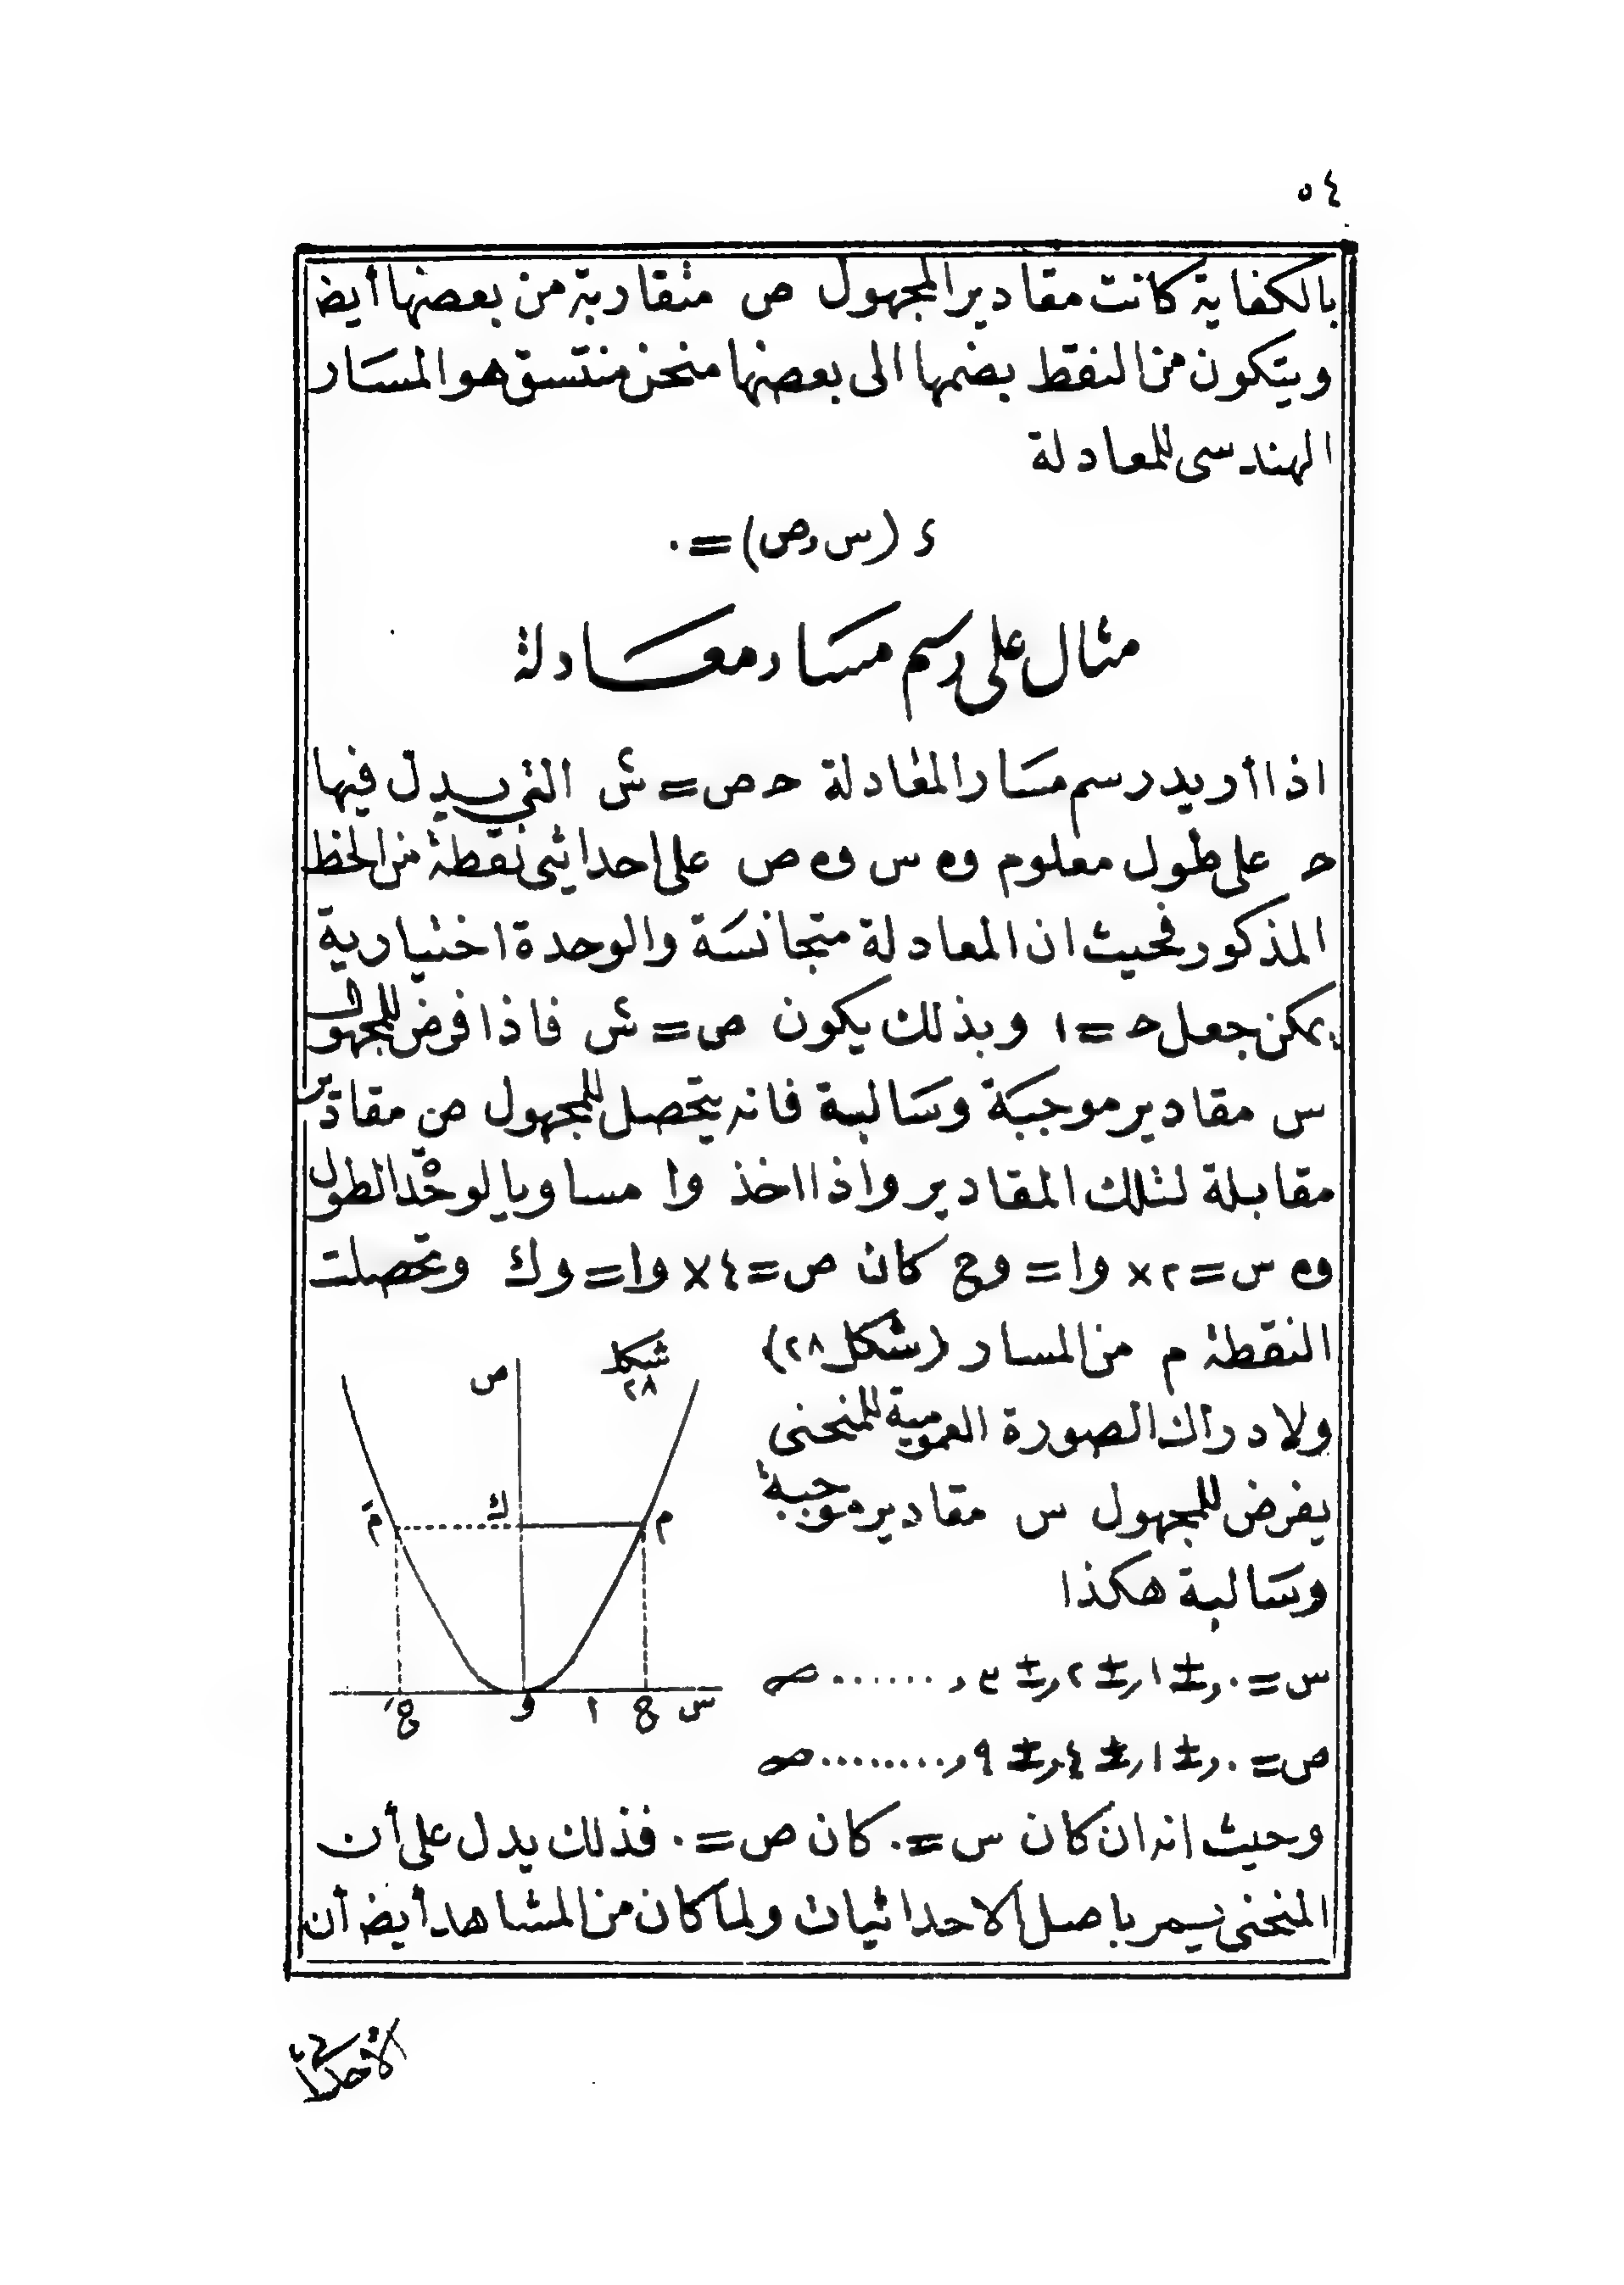 ٥٤
بالكفاية كانت مقادير المجهول ص متقاربة من بعضها أيض
ويتكون من النقط بضمها الى بعضها منحن منتسق هو المسار
الهندسى للمعادلة
د (س,ص)=٠
مثال على رسم مسار معادلة
اذا أريد رسم مسار المعادلة حـ ص = س٢ التى يدل فيها
حـ على طول معلوم و س و ص على احداثى نقطة من الخط
المذكور فحيث ان المعادلة متجانسة والوحدة اختيارية
يمكن جعل حـ = ١ وبذلك يكون ص = س٢ فاذا فرض للمجهول
س مقادير موجبة وسالبة فانه يتحصل للمجهول ص مقادير
مقابلة لتلك المقادير واذا اخذ وا مساويا لوحدة الطول
و س = ٢ × وا = وح كان ص = ٤ × وا = وك وتحصلت
النقطة م من المسار (شكل ٢٨)
ولادراك الصورة العمومية للمنحنى
يفرض للمجهول س مقادير موجبة
وسالبة هكذا
س = ٠ , ± ١ , ± ٢ , ± ٣ , ......
ص = ٠ , ± ١ , ± ٤ , ± ٩ , ........
شكل
٢٨
ص
مَ ك م
حَ و ا ح س
وحيث انه ان كان س = ٠ كان ص = ٠ فذلك يدل على أن
المنحنى يمر باصل الاحداثيات ولما كان من المشاهد أيض أن